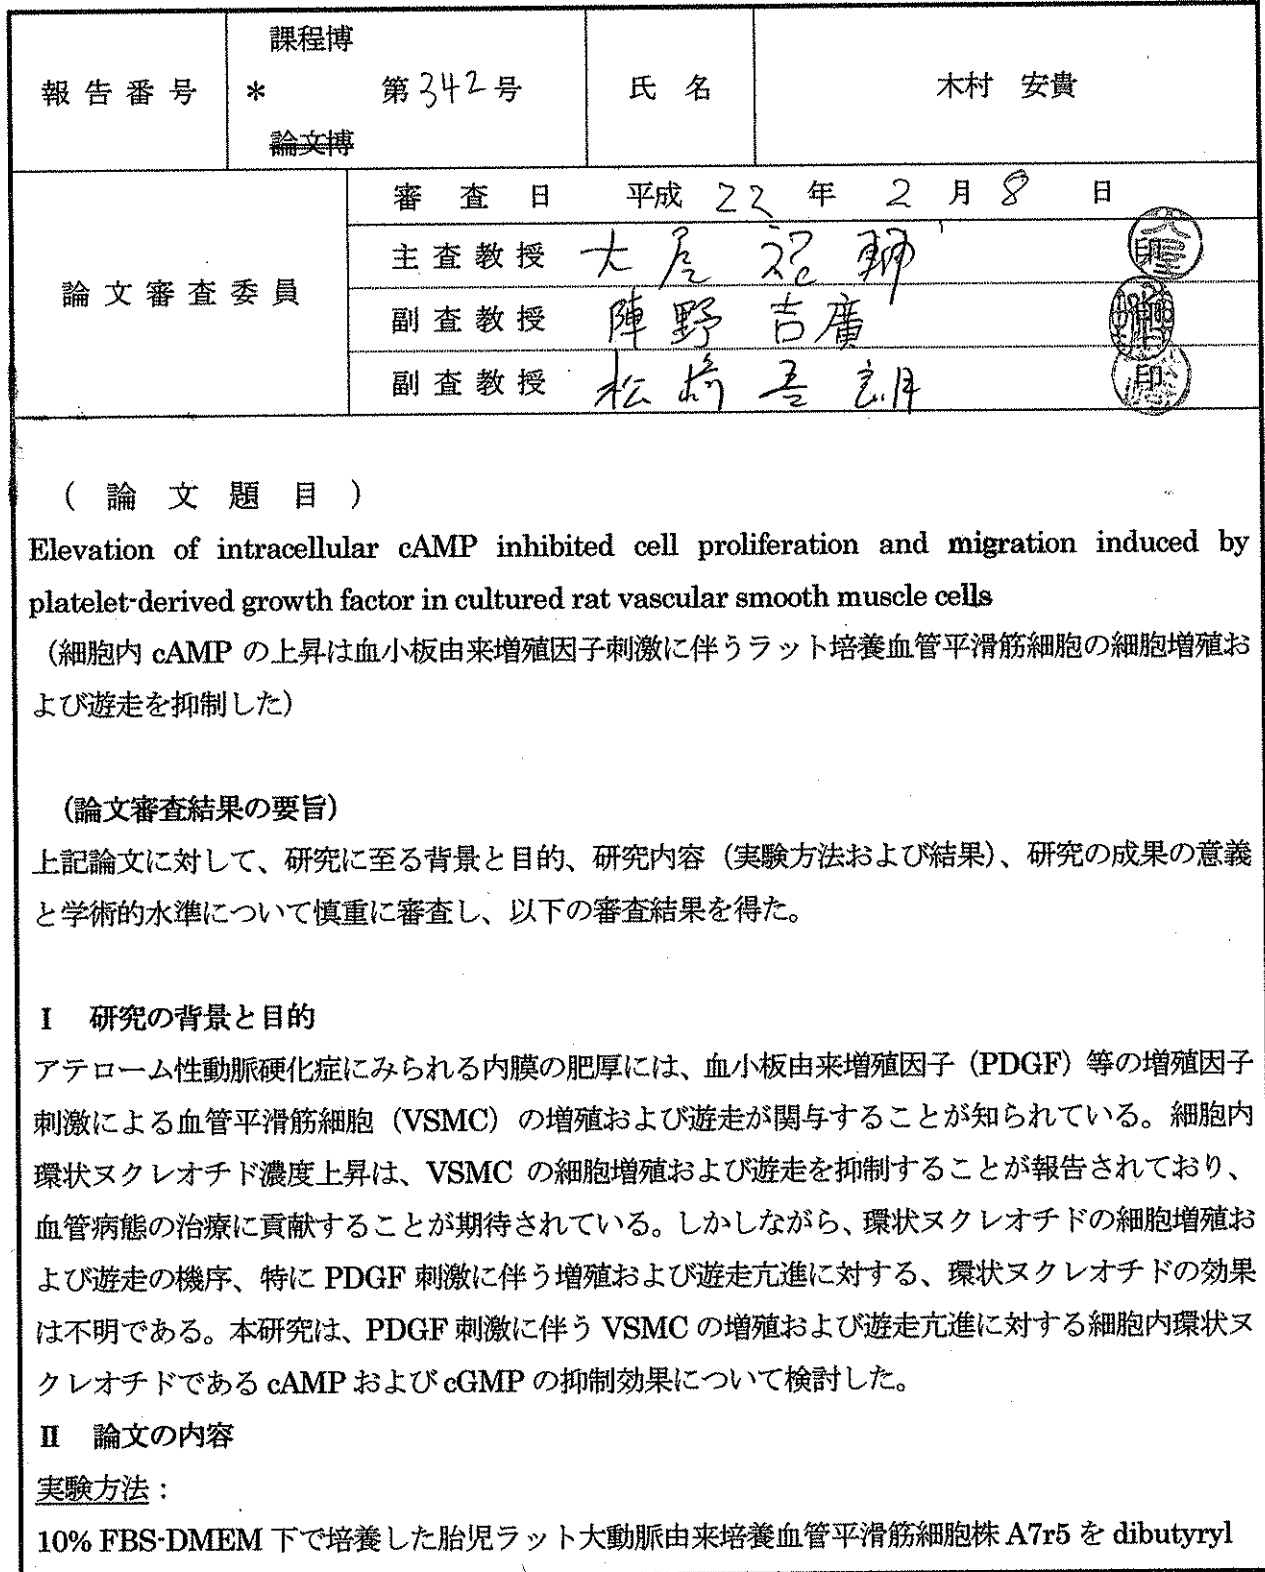 課程博
報告番号 * 第342号 氏名 木村 安貴
論文博
審査日 平成 22 年 2 月 8 日
論文審査委員
主査教授 大屋 祐輔 印
副査教授 陣野 吉廣 印
副査教授 松﨑 吾朗 印
(論文題目)
Elevation of intracellular cAMP inhibited cell proliferation and migration induced by
platelet-derived growth factor in cultured rat vascular smooth muscle cells
(細胞内 cAMP の上昇は血小板由来増殖因子刺激に伴うラット培養血管平滑筋細胞の細胞増殖お
よび遊走を抑制した)
(論文審査結果の要旨)
上記論文に対して、研究に至る背景と目的、研究内容(実験方法および結果)、研究の成果の意義
と学術的水準について慎重に審査し、以下の審査結果を得た。
Ⅰ 研究の背景と目的
アテローム性動脈硬化症にみられる内膜の肥厚には、血小板由来増殖因子(PDGF)等の増殖因子
刺激による血管平滑筋細胞(VSMC)の増殖および遊走が関与することが知られている。細胞内
環状ヌクレオチド濃度上昇は、VSMC の細胞増殖および遊走を抑制することが報告されており、
血管病態の治療に貢献することが期待されている。しかしながら、環状ヌクレオチドの細胞増殖お
よび遊走の機序、特に PDGF 刺激に伴う増殖および遊走亢進に対する、環状ヌクレオチドの効果
は不明である。本研究は、PDGF 刺激に伴う VSMC の増殖および遊走亢進に対する細胞内環状ヌ
クレオチドである cAMP および cGMP の抑制効果について検討した。
Ⅱ 論文の内容
実験方法:
10% FBS-DMEM 下で培養した胎児ラット大動脈由来培養血管平滑筋細胞株 A7r5 を dibutyryl